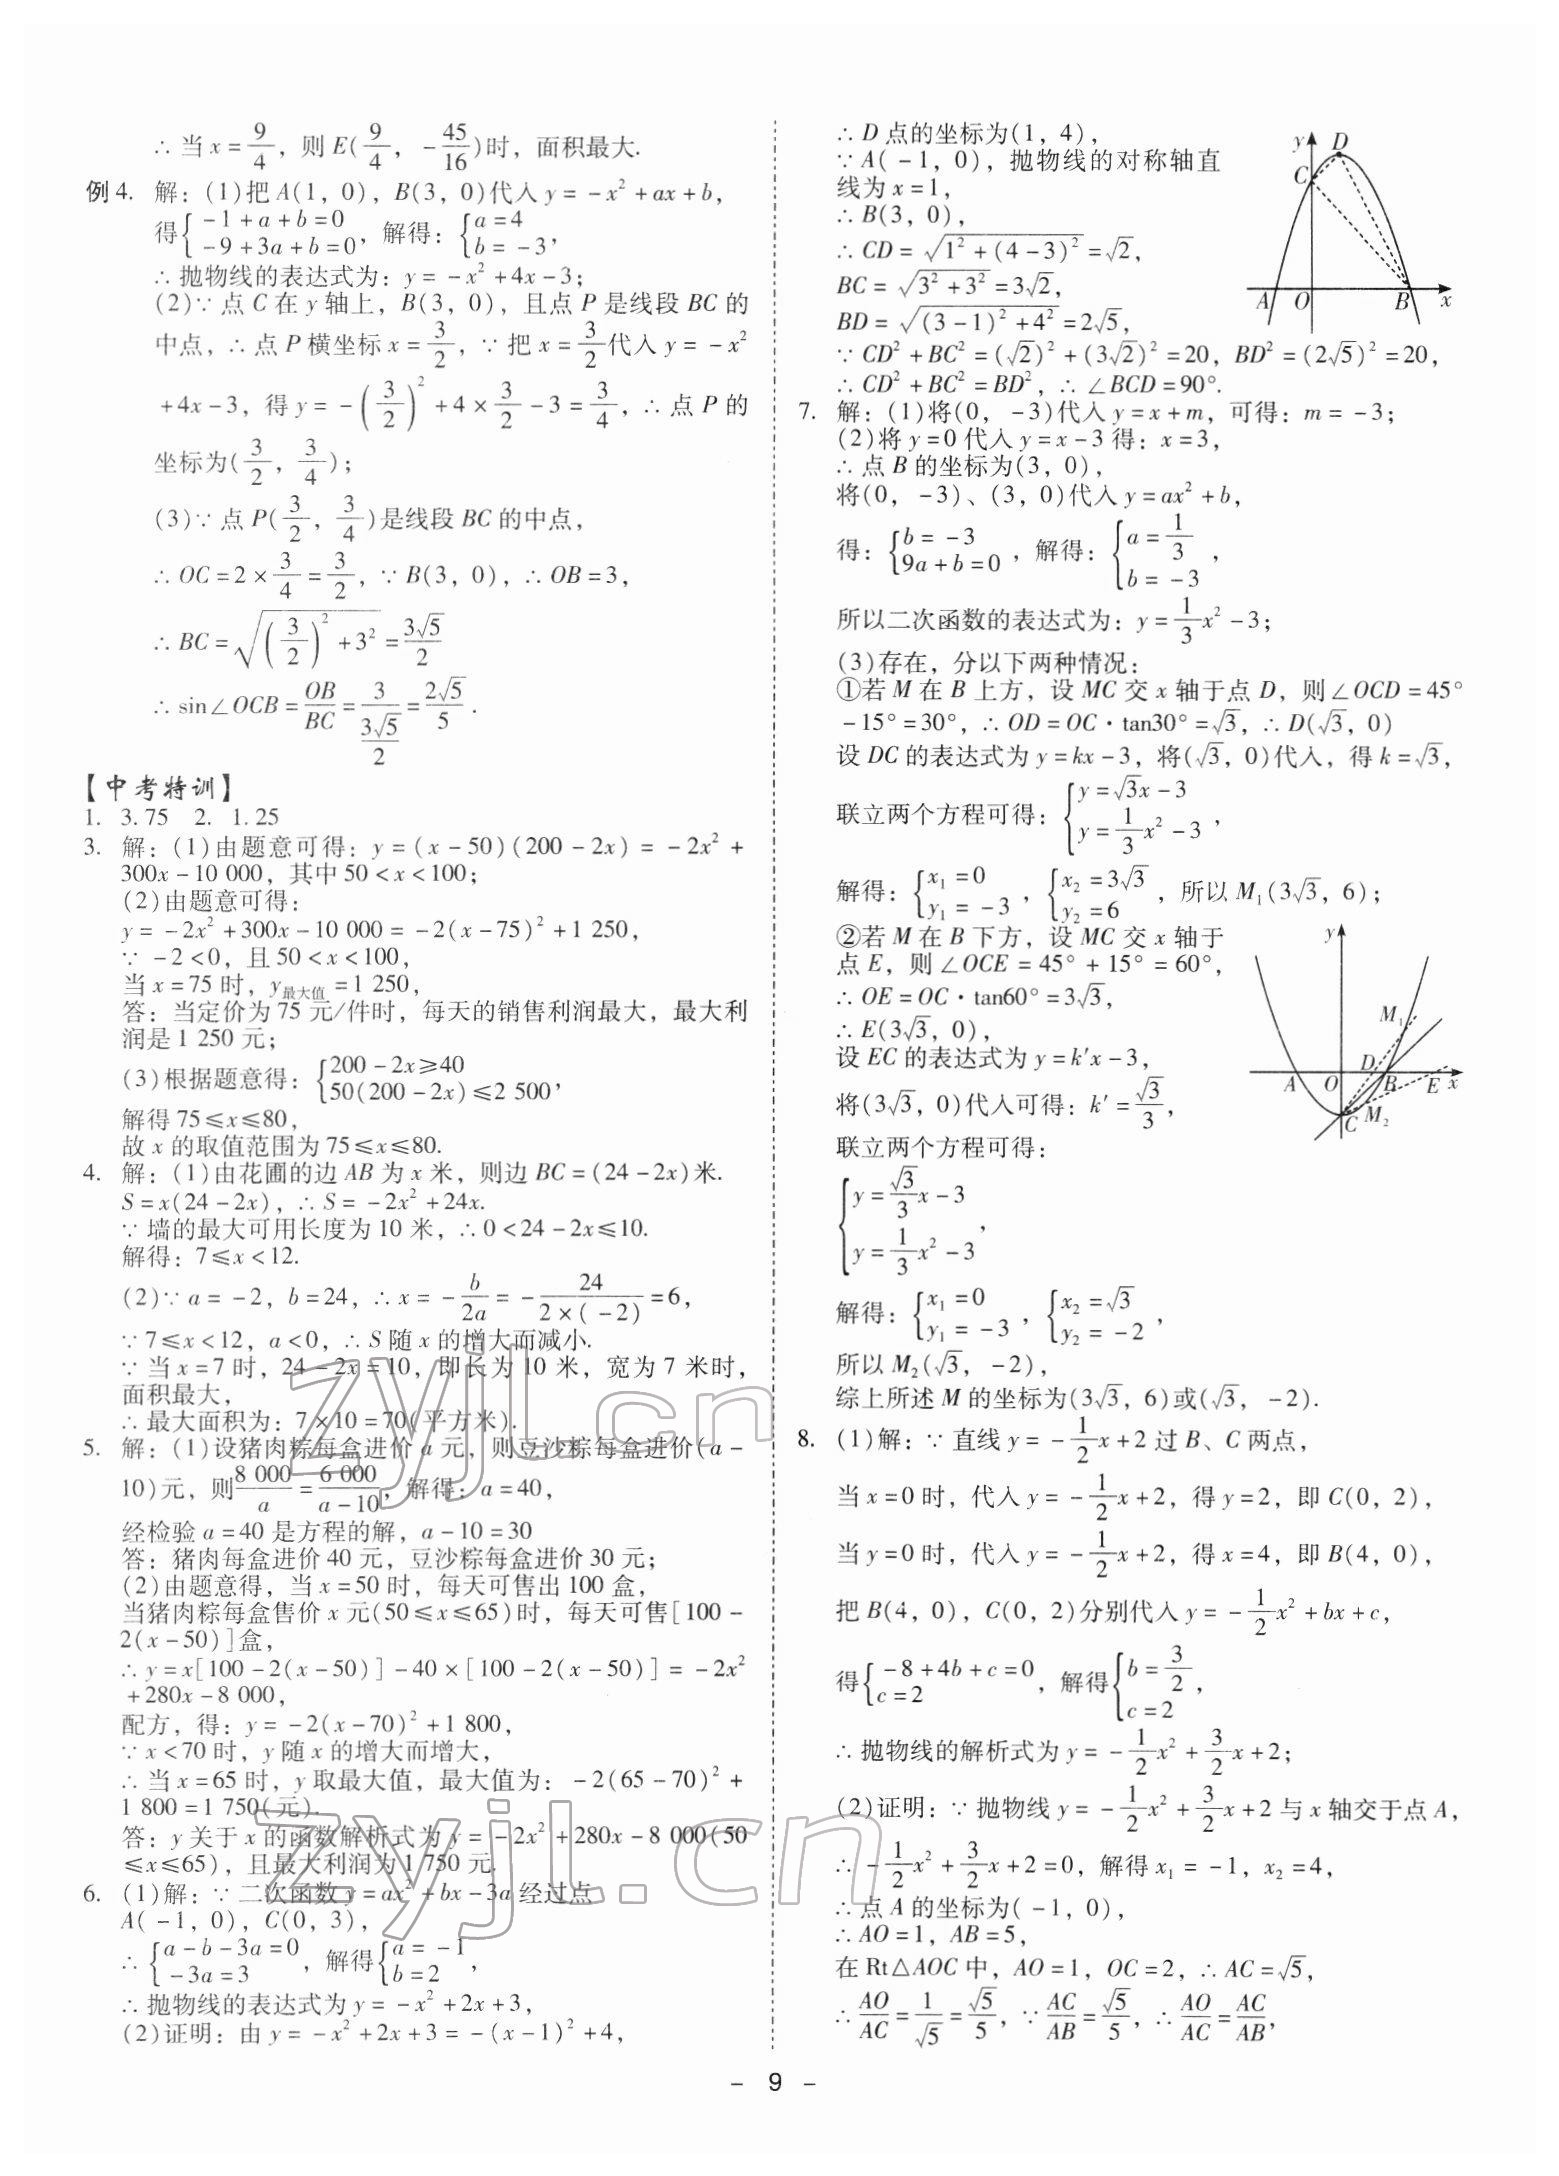 ∴ 当 x = 9/4，则 E(9/4，-45/16)时，面积最大.
例4. 解：(1)把 A(1，0)，B(3，0)代入 y = -x² + ax + b，
得{-1 + a + b = 0 / -9 + 3a + b = 0，解得：{a = 4 / b = -3，
∴ 抛物线的表达式为：y = -x² + 4x - 3；
(2)∵ 点 C 在 y 轴上，B(3，0)，且点 P 是线段 BC 的
中点，∴ 点 P 横坐标 x = 3/2，∵ 把 x = 3/2 代入 y = -x²
+4x - 3，得 y = -(3/2)² + 4 × 3/2 - 3 = 3/4，∴ 点 P 的
坐标为(3/2，3/4)；
(3)∵ 点 P(3/2，3/4)是线段 BC 的中点，
∴ OC = 2 × 3/4 = 3/2，∵ B(3，0)，∴ OB = 3，
∴ BC = √((3/2)² + 3²) = 3√5/2
∴ sin∠OCB = OB/BC = 3/(3√5/2) = 2√5/5.
【中考特训】
1. 3.75 2. 1.25
3. 解：(1)由题意可得：y = (x - 50)(200 - 2x) = -2x² +
300x - 10 000，其中 50 < x < 100；
(2)由题意可得：
y = -2x² + 300x - 10 000 = -2(x - 75)² + 1 250，
∵ -2 < 0，且 50 < x < 100，
当 x = 75 时，y最大值 = 1 250，
答：当定价为 75 元/件时，每天的销售利润最大，最大利
润是 1 250 元；
(3)根据题意得：{200 - 2x ≥ 40 / 50(200 - 2x) ≤ 2 500，
解得 75 ≤ x ≤ 80，
故 x 的取值范围为 75 ≤ x ≤ 80.
4. 解：(1)由花圃的边 AB 为 x 米，则边 BC = (24 - 2x)米.
S = x(24 - 2x)，∴ S = -2x² + 24x.
∵ 墙的最大可用长度为 10 米，∴ 0 < 24 - 2x ≤ 10.
解得：7 ≤ x < 12.
(2)∵ a = -2，b = 24，∴ x = -b/2a = -24/(2 × (-2)) = 6，
∵ 7 ≤ x < 12，a < 0，∴ S 随 x 的增大而减小.
∵ 当 x = 7 时，24 - 2x = 10，即长为 10 米，宽为 7 米时，
面积最大，
∴ 最大面积为：7 × 10 = 70(平方米).
5. 解：(1)设猪肉粽每盒进价 a 元，则豆沙粽每盒进价(a -
10)元，则 8 000/a = 6 000/(a - 10)，解得：a = 40，
经检验 a = 40 是方程的解，a - 10 = 30
答：猪肉每盒进价 40 元，豆沙粽每盒进价 30 元；
(2)由题意得，当 x = 50 时，每天可售出 100 盒，
当猪肉粽每盒售价 x 元(50 ≤ x ≤ 65)时，每天可售[100 -
2(x - 50)]盒，
∴ y = x[100 - 2(x - 50)] - 40 × [100 - 2(x - 50)] = -2x²
+280x - 8 000，
配方，得：y = -2(x - 70)² + 1 800，
∵ x < 70 时，y 随 x 的增大而增大，
∴ 当 x = 65 时，y 取最大值，最大值为：-2(65 - 70)² +
1 800 = 1 750(元).
答：y 关于 x 的函数解析式为 y = -2x² + 280x - 8 000(50
≤ x ≤ 65)，且最大利润为 1 750 元.
6. (1)解：∵ 二次函数 y = ax² + bx - 3a 经过点
A(-1，0)，C(0，3)，
∴ {a - b - 3a = 0 / -3a = 3，解得{a = -1 / b = 2，
∴ 抛物线的表达式为 y = -x² + 2x + 3，
(2)证明：由 y = -x² + 2x + 3 = -(x - 1)² + 4，
∴ D 点的坐标为(1，4)，
∵ A(-1，0)，抛物线的对称轴直
线为 x = 1，
∴ B(3，0)，
∴ CD = √(1² + (4 - 3)²) = √2，
BC = √(3² + 3²) = 3√2，
BD = √((3 - 1)² + 4²) = 2√5，
y D
C
A O B x
∵ CD² + BC² = (√2)² + (3√2)² = 20，BD² = (2√5)² = 20，
∴ CD² + BC² = BD²，∴ ∠BCD = 90°.
7. 解：(1)将(0，-3)代入 y = x + m，可得：m = -3；
(2)将 y = 0 代入 y = x - 3 得：x = 3，
∴ 点 B 的坐标为(3，0)，
将(0，-3)、(3，0)代入 y = ax² + b，
得：{b = -3 / 9a + b = 0，解得：{a = 1/3 / b = -3，
所以二次函数的表达式为：y = 1/3x² - 3；
(3)存在，分以下两种情况：
①若 M 在 B 上方，设 MC 交 x 轴于点 D，则∠OCD = 45°
-15° = 30°，∴ OD = OC·tan30° = √3，∴ D(√3，0)
设 DC 的表达式为 y = kx - 3，将(√3，0)代入，得 k = √3，
联立两个方程可得：{y = √3x - 3 / y = 1/3x² - 3，
解得：{x₁ = 0 / y₁ = -3，{x₂ = 3√3 / y₂ = 6，所以 M₁(3√3，6)；
②若 M 在 B 下方，设 MC 交 x 轴于
点 E，则∠OCE = 45° + 15° = 60°，
∴ OE = OC·tan60° = 3√3，
∴ E(3√3，0)，
设 EC 的表达式为 y = k′x - 3，
将(3√3，0)代入可得：k′ = √3/3，
y
M₁
D
A O B E x
C M₂
联立两个方程可得：
{y = √3/3x - 3 / y = 1/3x² - 3，
解得：{x₁ = 0 / y₁ = -3，{x₂ = √3 / y₂ = -2，
所以 M₂(√3，-2)，
综上所述 M 的坐标为(3√3，6)或(√3，-2).
8. (1)解：∵ 直线 y = -1/2x + 2 过 B、C 两点，
当 x = 0 时，代入 y = -1/2x + 2，得 y = 2，即 C(0，2)，
当 y = 0 时，代入 y = -1/2x + 2，得 x = 4，即 B(4，0)，
把 B(4，0)，C(0，2)分别代入 y = -1/2x² + bx + c，
得{-8 + 4b + c = 0 / c = 2，解得{b = 3/2 / c = 2，
∴ 抛物线的解析式为 y = -1/2x² + 3/2x + 2；
(2)证明：∵ 抛物线 y = -1/2x² + 3/2x + 2 与 x 轴交于点 A，
∴ -1/2x² + 3/2x + 2 = 0，解得 x₁ = -1，x₂ = 4，
∴ 点 A 的坐标为(-1，0)，
∴ AO = 1，AB = 5，
在 Rt△AOC 中，AO = 1，OC = 2，∴ AC = √5，
∴ AO/AC = 1/√5 = √5/5，∵ AC/AB = √5/5，∴ AO/AC = AC/AB，
- 9 -
zyjl.cn
zyjl.cn